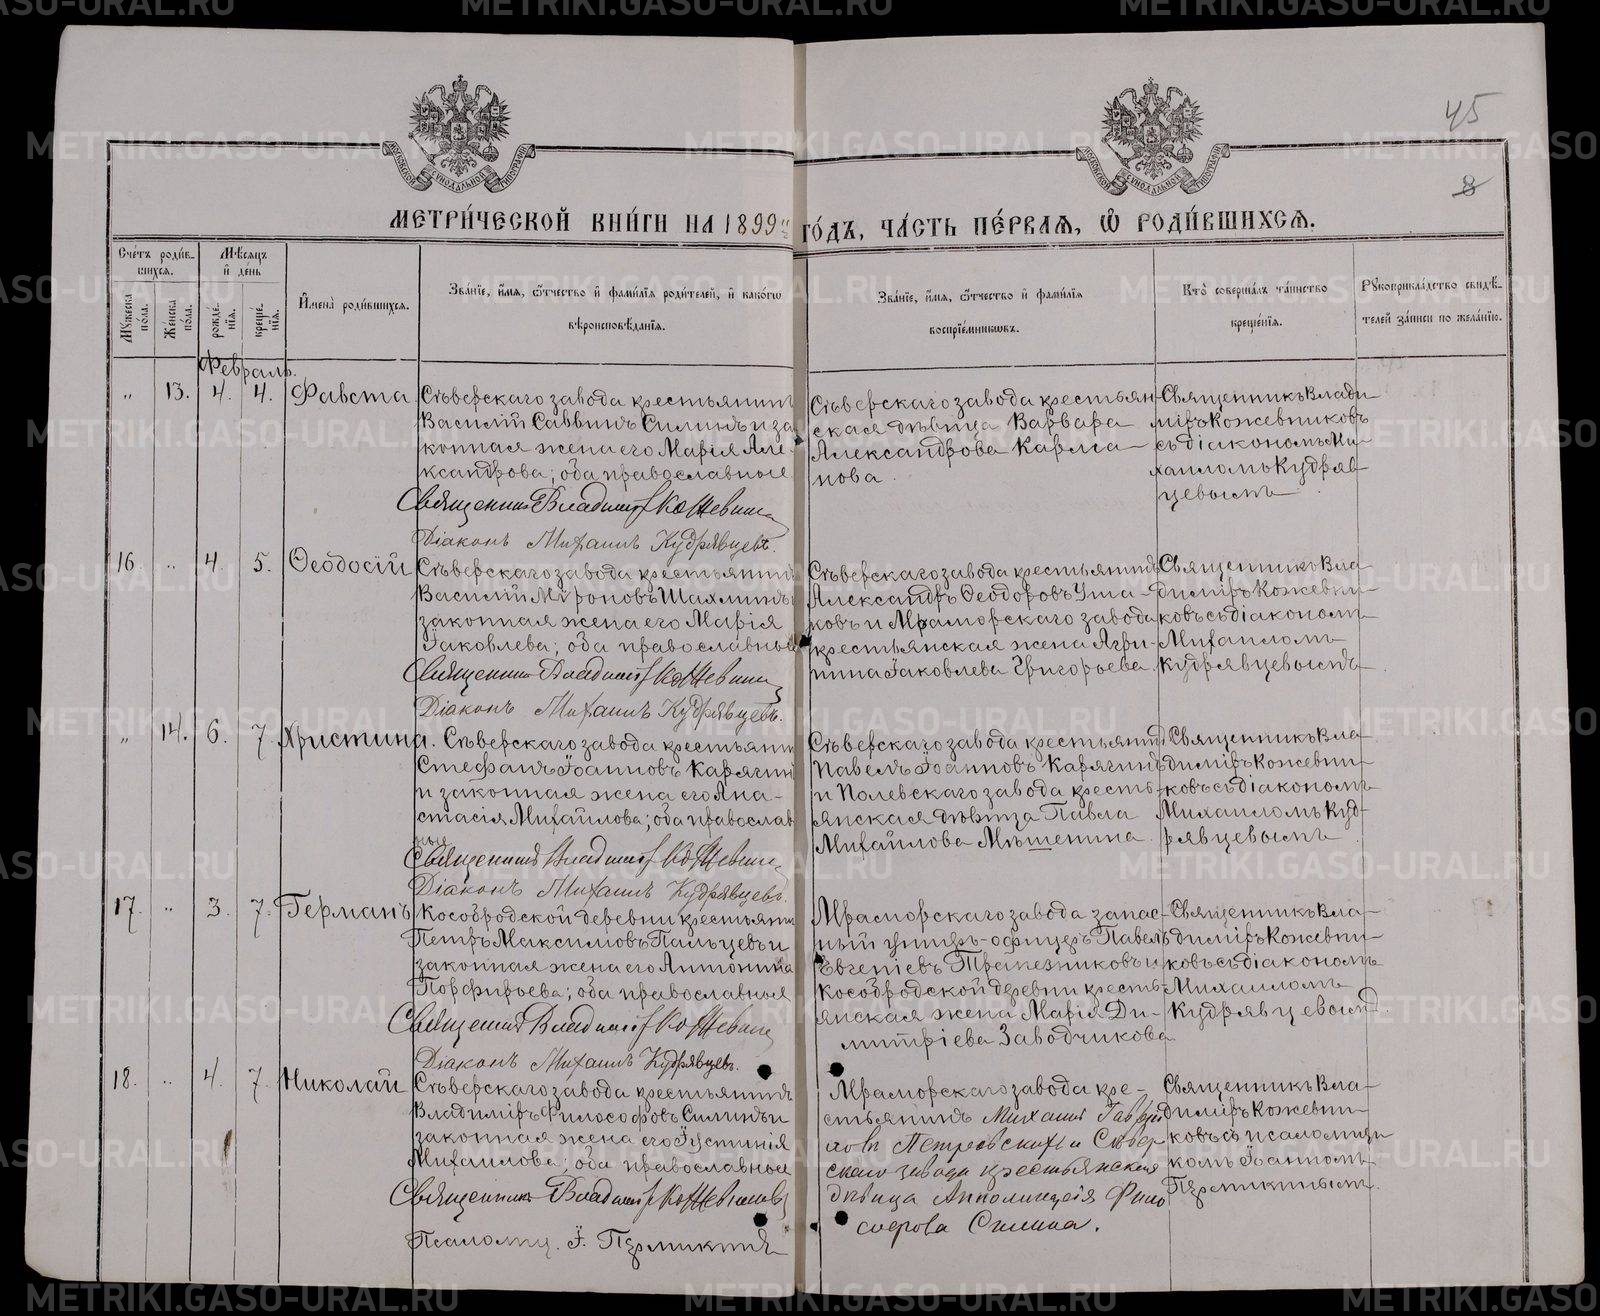 45
8
МЕТРИ́ЧЕСКОЙ КНИ́ГИ НА 1899 й ГО́ДЪ, ЧА́СТЬ ПЕ́РВАЯ, Ѿ РОДИ́ВШИХСЯ.
Сче́тъ роди́в-
шихся.
Му́жеска по́ла.
Же́нска по́ла.
Мѣ́сяцъ и де́нь
рожде́-нїя.
креще́-нїя.
И҆мена̀ роди́вшихся.
Зва́нїе, и҆́мя, ѻ҆́тчество и҆ фами́лїя роди́телей, и҆ како́гѡ
вѣроисповѣ́данїя.
Зва́нїе, и҆́мя, ѻ҆́тчество и҆ фами́лїя
воспрїе́мникѡвъ.
Кто̀ соверша́лъ та́инство
креще́нїя.
Рꙋкоприкла́дство свидѣ́-
телей за́писи по жела́нїю.
Февраль.
" 13. 4. 4. Фавста
Сѣверскаго завода крестьянинъ
Василій Саввинъ Силинъ и за
конная жена его Марія Але-
ксандрова; оба православные
Священникъ Владиміръ Кожевник
Діаконъ Михаилъ Кудрявцевъ.
Сѣверскаго завода крестьян-
ская дѣвица Варвара
Александрова Карма-
нова.
Священникъ Влади-
міръ Кожевниковъ
съ діакономъ Ми-
хаиломъ Кудряв-
цевымъ
16. " 4. 5. Ѳеодосій
Сѣверскаго завода крестьянинъ
Василій Мѵроновъ Шахминъ и
законная жена его Марія
Іаковлева; оба православные
Священникъ Владиміръ Кожевник
Діаконъ Михаилъ Кудрявцевъ.
Сѣверскаго завода крестьянинъ
Александръ Ѳеодоровъ Уша-
ковъ и Мраморскаго завода
крестьянская жена Агри-
пина Іаковлева Григорьева
Священникъ Вла-
диміръ Кожевни-
ковъ съ діакономъ
Михаиломъ
Кудрявцевымъ
" 14. 6. 7. Христина.
Сѣверскаго завода крестьянин
Стефанъ Іоанновъ Карягинъ
и законная жена его Ана-
стасія Михайлова; оба православ
ные
Священникъ Владиміръ Кожевник
Діаконъ Михаилъ Кудрявцевъ.
Сѣверскаго завода крестьянинъ
Павелъ Іоанновъ Карягинъ
и Полевскаго завода кресть-
янская дѣвица Павла
Михайлова Мѣшенина
Священникъ Вла-
диміръ Кожевни-
ковъ съ діакономъ
Михаиломъ Куд-
рявцевымъ
17. " 3. 7. Германъ
Кособродской деревни крестьянин
Петръ Максимовъ Пальцевъ и
законная жена его Антонина
Порфирьева; оба православные
Священникъ Владиміръ Кожевник
Діаконъ Михаилъ Кудрявцевъ.
Мраморскаго завода запас-
ный унтеръ-офицеръ Павелъ
Евгеніевъ Трапезниковъ и
Кособродской деревни кресть-
янская жена Марія Ди-
митріева Заводчикова
Священникъ Вла-
диміръ Кожевни-
ковъ съ діакономъ
Михаиломъ
Кудрявцевымъ.
18. " 4. 7. Николай
Сѣверскаго завода крестьянинъ
Владиміръ Философовъ Силинъ и
законная жена его Іустинія
Михаилова; оба православные
Священникъ Владиміръ Кожевников
Псаломщ. І. Пермикинъ
Мраморскаго завода кре-
стьянинъ Михаилъ Гаврі
ловъ Петровскихъ и Сѣвер
скаго завода крестьянская
дѣвица Апполинарія Фило
софова Силина.
Священникъ Вла-
диміръ Кожевни-
ковъ съ псаломщи
комъ Іоанномъ
Пермикинымъ.
METRIKI.GASO-URAL.RU